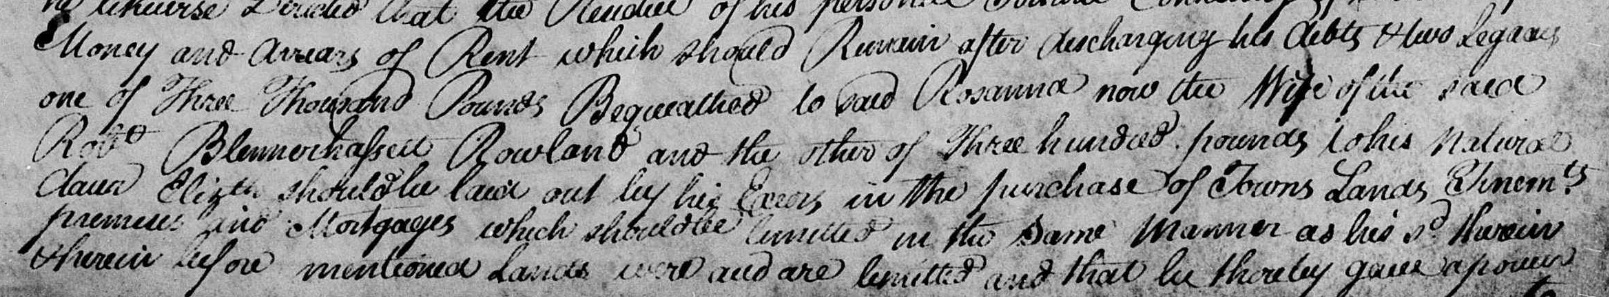 he likewise Directed that the Residue of his personal
Money and Arrears of Rent which should Remain after discharging his debts & two Legacys
one of Three Thousand Pounds Bequeathed to said Rosanna now the Wife of the said
Robt Blennerhassett Rowland and the other of Three hundred pounds to his Natural
daur Elizth should be laid out by his Exors in the purchase of Towns Lands Tinemts
premises and Mortgages which should be limitted in the Same Manner as his sd therein
& herein before mentioned Lands were and are limitted and that he thereby gave a power